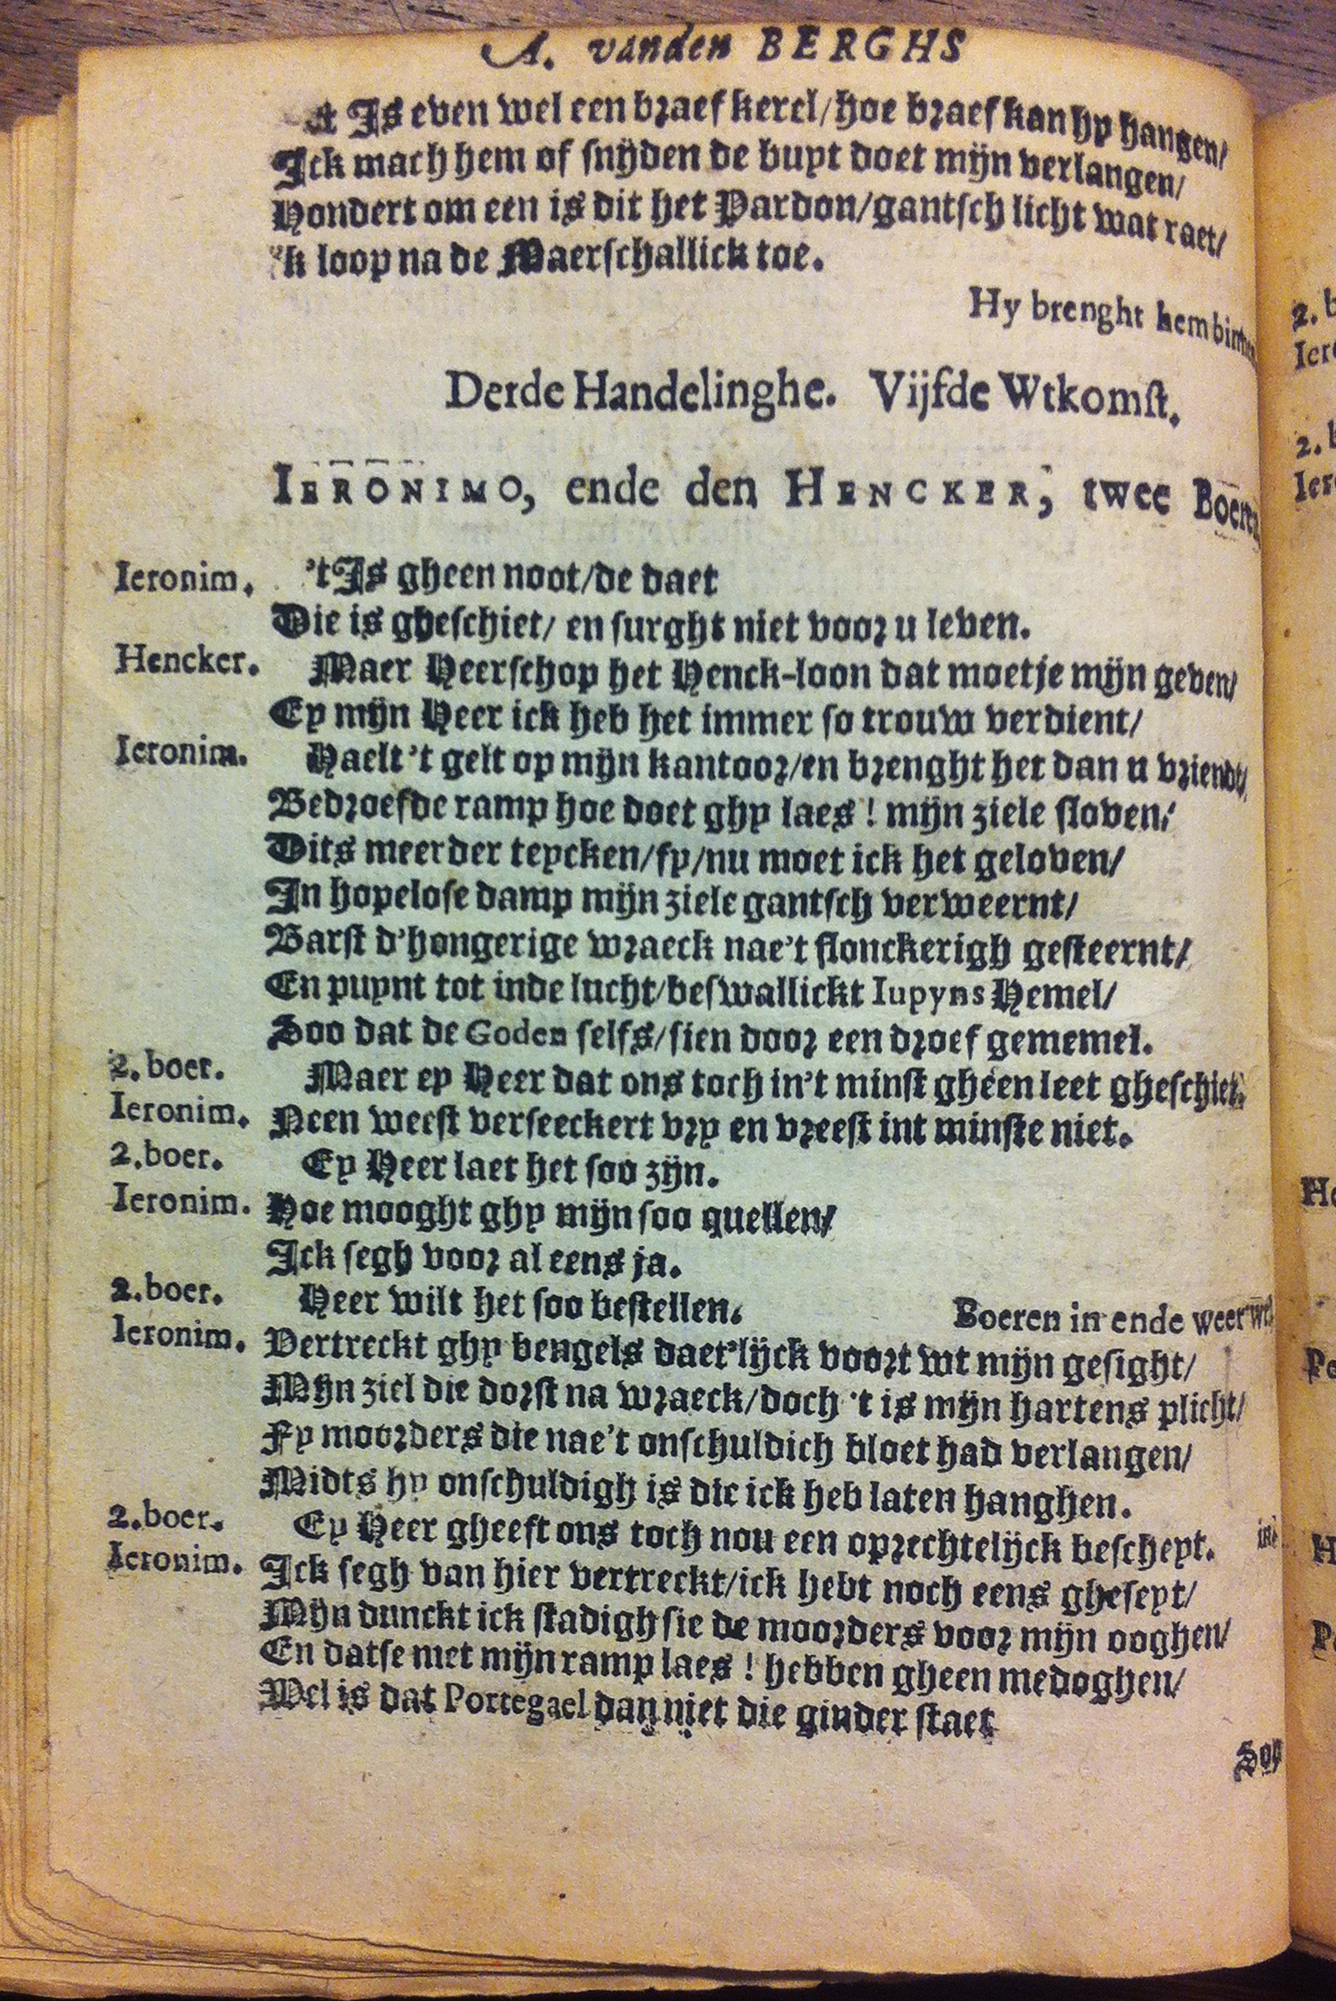 A. vanden BERGHS
't Is even wel een braef kerel/hoe braef kan hy hangen/
Ick mach hem of snijden de buyt doet mijn verlangen/
Hondert om een is dit het Pardon/gantsch licht wat raet/
'k loop na de Maerschallick toe.
Hy brenght hem binnen
Derde Handelinghe. Vijfde Wtkomst.
IERONIMO, ende den HENCKER, twee Boeren
Ieronim. 'tIs gheen noot/de daet
Die is gheschiet/ en surght niet voor u leven.
Hencker. Maer Heerschop het Henck-loon dat moetje mijn geven/
Ey mijn Heer ick heb het immer so trouw verdient/
Ieronim. Haelt 't gelt op mijn kantoor/en brenght het dan u vriendt/
Bedroefde ramp hoe doet ghy laes ! mijn ziele sloven/
Dits meerder teycken/fy/nu moet ick het geloven/
In hopelose damp mijn ziele gantsch verweernt/
Barst d'hongerige wraeck nae't flonckerigh gesteernt/
En puynt tot inde lucht/beswallickt Iupyns Hemel/
Soo dat de Goden selfs/sien door een droef gememel.
2. boer. Maer ey Heer dat ons toch in't minst gheen leet gheschiet.
Ieronim. Neen weest verseeckert vry en vreest int minste niet.
2. boer. Ey Heer laet het soo zijn.
Ieronim. Hoe mooght ghy mijn soo quellen/
Ick segh voor al eens ja.
2. boer. Heer wilt het soo bestellen. Boeren in ende weer
Ieronim. Vertreckt ghy bengels daet'lijck voort wt mijn gesight/
Mijn ziel die dorst na wraeck/doch 't is mijn hartens plicht/
Fy moorders die nae't onschuldich bloet had verlangen/
Midts hy onschuldigh is die ick heb laten hanghen.
2. boer. Ey Heer gheeft ons toch nou een oprechtelijck bescheyt.
Ieronim. Ick segh van hier vertreckt/ick hebt noch eens gheseyt/
Mijn dunckt ick stadigh sie de moorders voor mijn ooghen/
En datse met mijn ramp laes ! hebben gheen medoghen/
Wel is dat Portegael dan niet die ginder staet
Soo